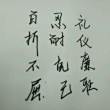 礼仪廉耻
忍耐克己
百折不屈